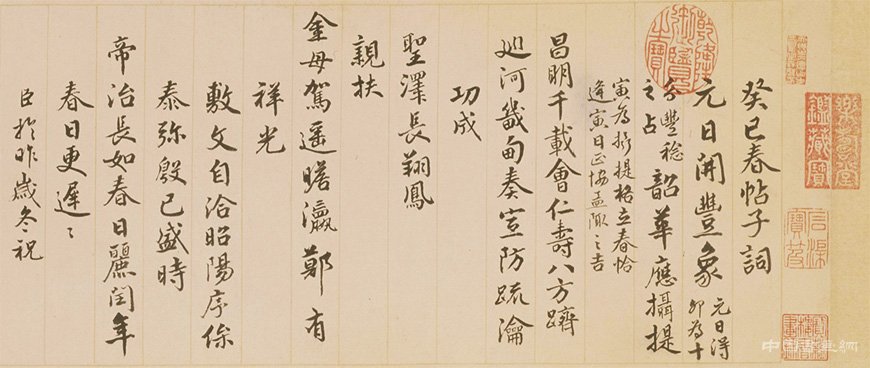 樂壽堂
鑑藏寶
石渠
寶笈
乾隆御覽之寶
癸巳春帖子詞
元日開豐象 元日得
卯為十
分豐稔
之占 韶華應攝提
寅為攝提格立春恰
逢寅日正協孟陬之吉
昌明千載會仁壽八方躋
巡河畿甸奏宣防疏瀹
功成
聖澤長翔鳳
親扶
金母駕遥瞻瀛鄭有
祥光
敷文自洽昭陽序保
泰弥殷已盛時
帝治長如春日麗閏年
春日更遲〻
臣於昨歲冬祝